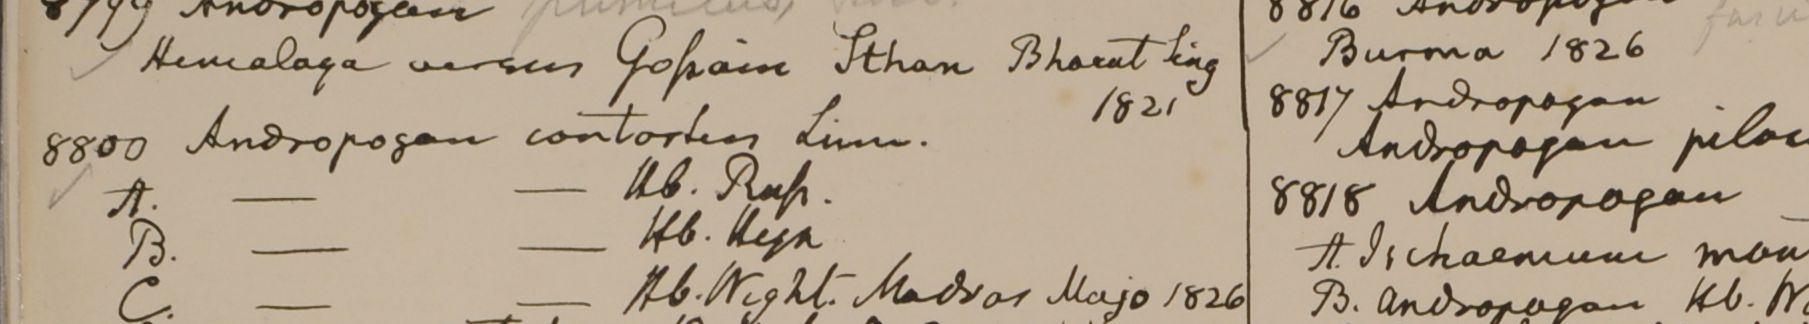 8799 Andropogan
Himalaya versus Goſsain Sthan Bharut Sing
1821
8800 Andropogan contortus Linn.
A. — — Hb. Ruſs.
B. — — Hb. Heyn
C. — — Hb. Wight. Madras Majo 1826
8816 Andropogan
Burma 1826
8817 Andropogan
Andropogan
8818 Andropogan
A. Ischaemum
B. Andropogan Hb.